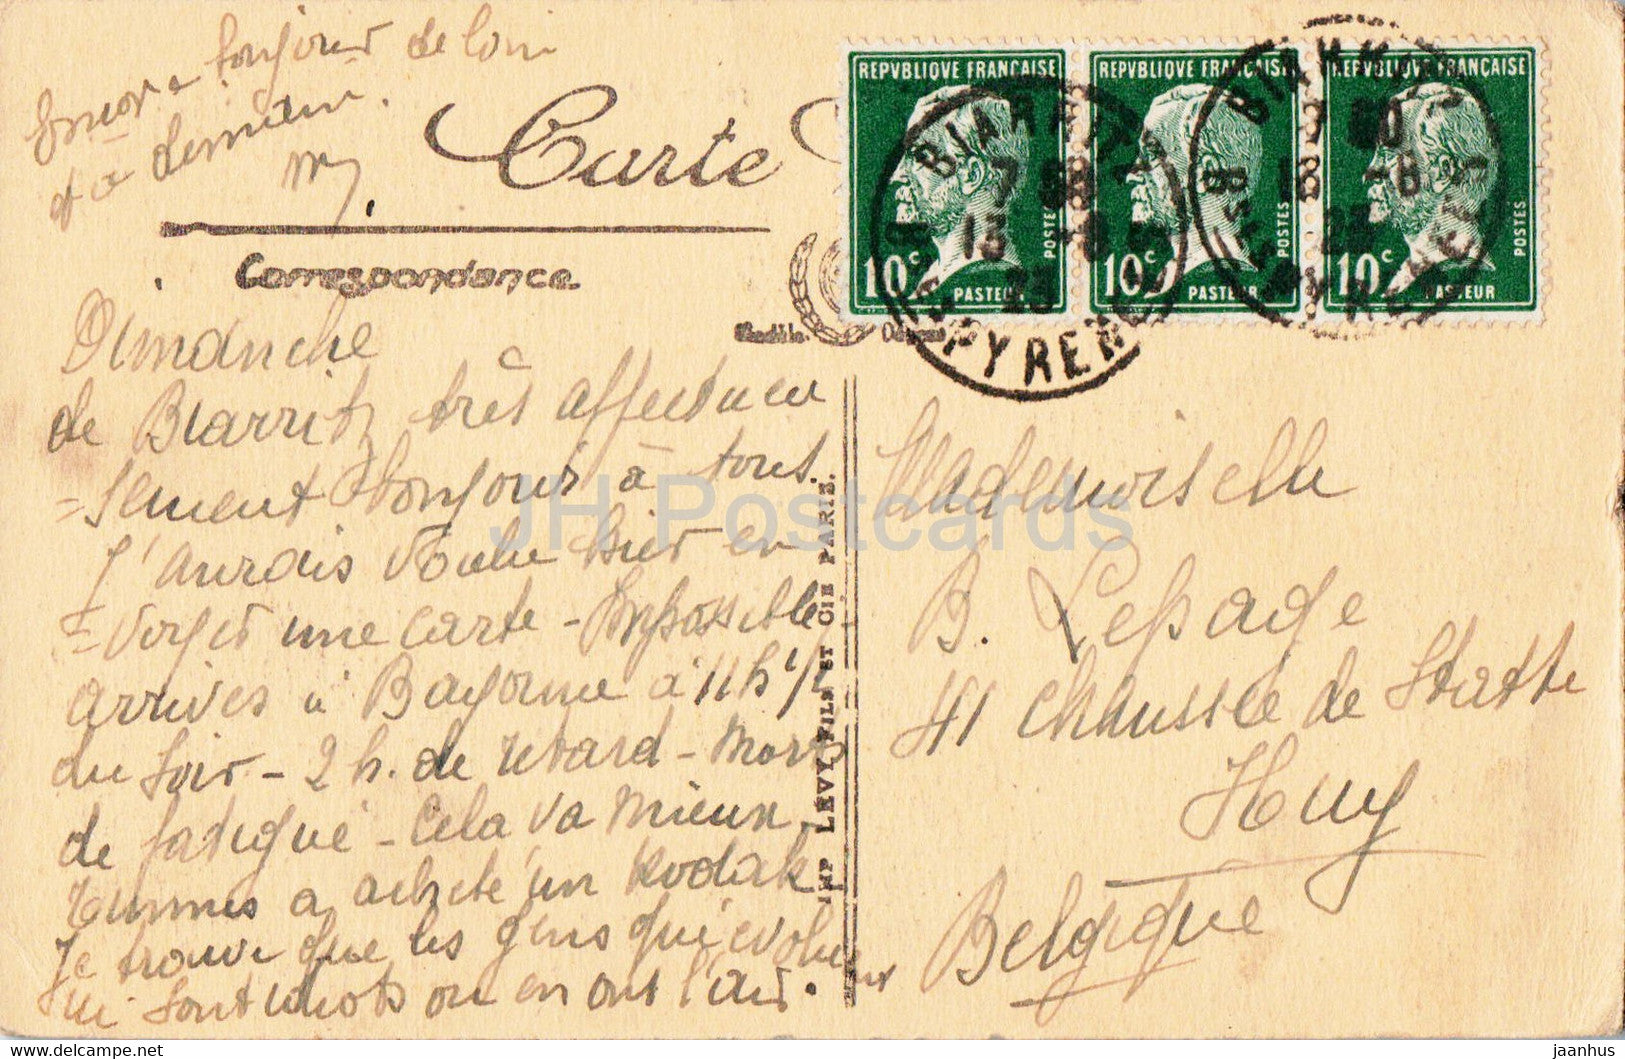 Encore toujours de loin
et à demain.
My.
Carte
Correspondance
REPVBLIQVE FRANÇAISE
10c
POSTES
PASTEUR
REPVBLIQVE FRANÇAISE
10c
POSTES
PASTEUR
REPVBLIQVE FRANÇAISE
10c
POSTES
PASTEUR
BIARRITZ
PYRENEES
BIARRITZ
PYRENEES
Dimanche
de Biarritz très affectueu
=sement bonjour à tous.
J'aurais voulu hier en
=voyer une carte - Impossible
arrivés à Bayonne à 11 h 1/2
du soir - 2 h. de retard - Morts
de fatigue - Cela va mieux
a acheté un Kodak
Je trouve que les gens qui évoluent
ici sont idiots ou en ont l'air.
IMP LEVY FILS ET CIE PARIS.
Mademoiselle
B. Lepage
41 Chaussée de Statte
Huy
Belgique
JH Postcards
www.delcampe.net
jaanhus